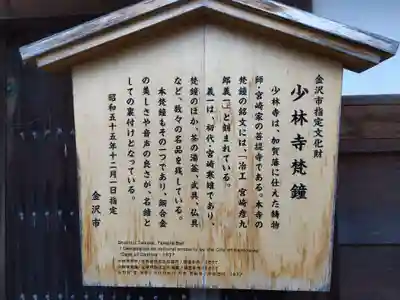 金沢市指定文化財
少林寺梵鐘
少林寺は、加賀藩に仕えた鋳物
師・宮崎家の菩提寺である。本寺の
梵鐘の銘文には、「冶工 宮崎彦九
郎義一」と刻まれている。
義一は、初代・宮崎寒雉であり、
梵鐘のほか、茶の湯釜、武具、仏具
など、数々の名品を残している。
本梵鐘もその一つであり、銅合金
の美しさや音声の良さが、名鐘と
しての裏付けとなっている。
昭和五十五年十二月一日指定
金沢市
Shorinji Temple, Temple Bell